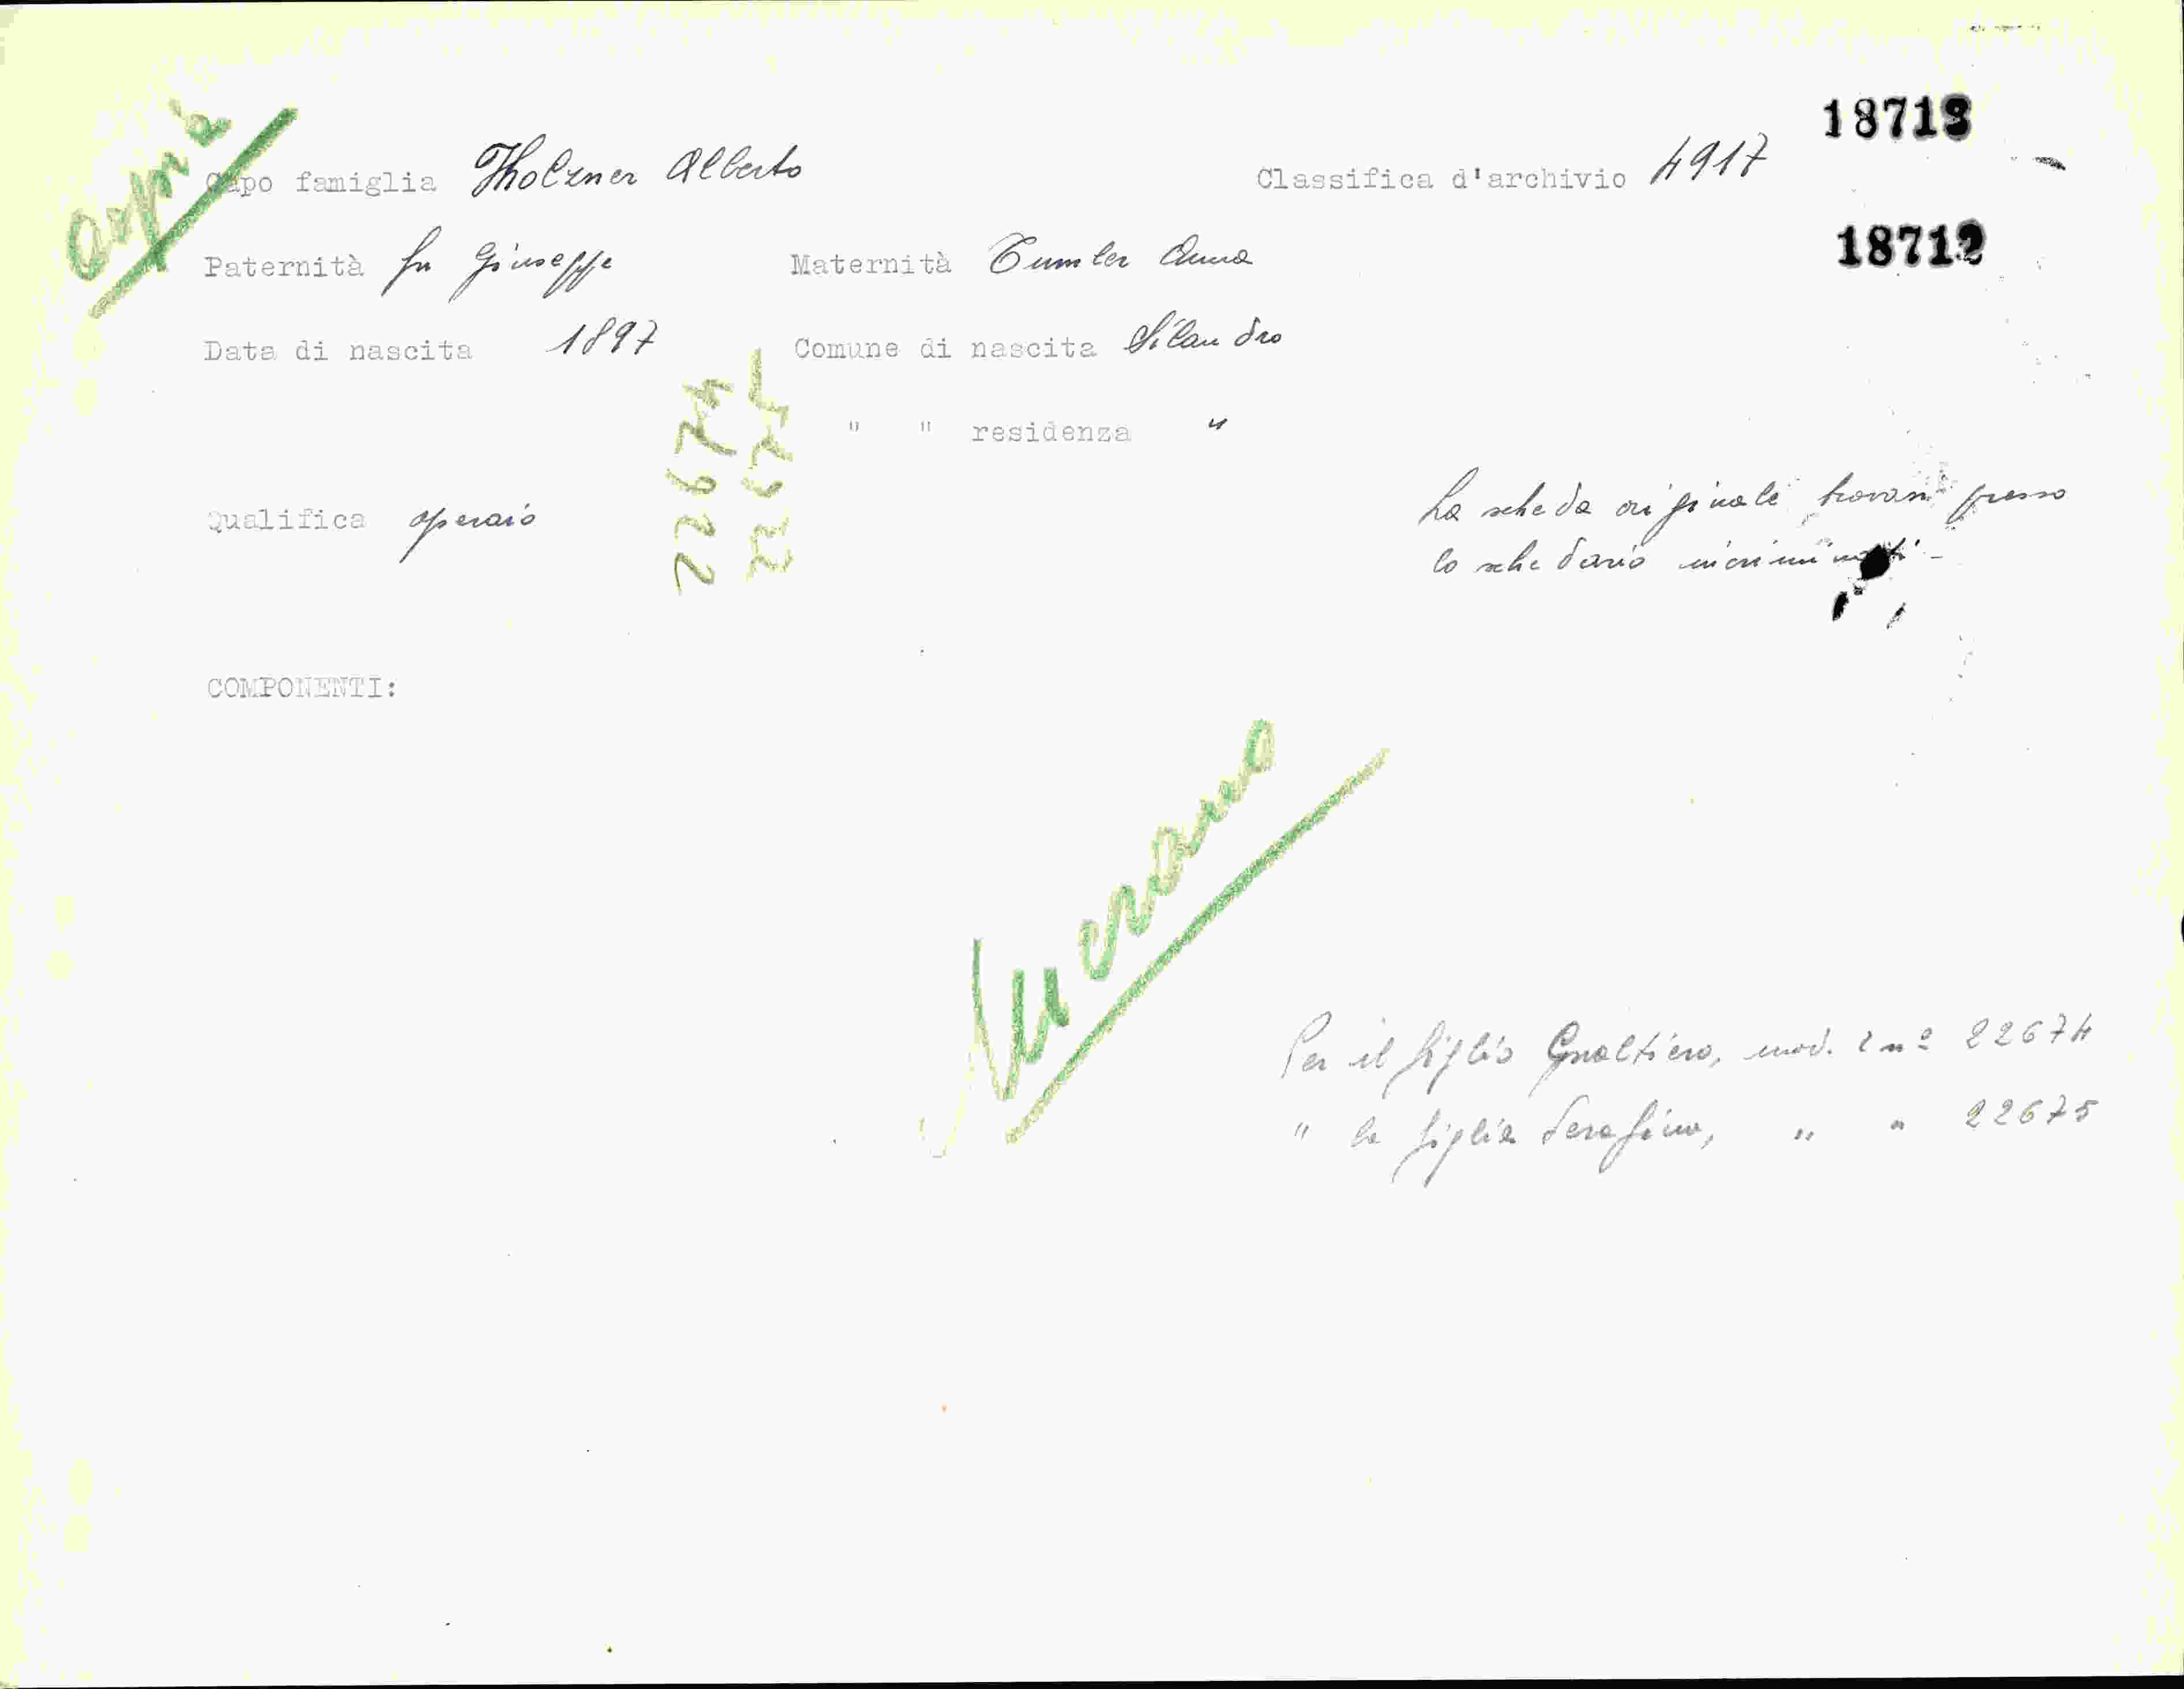 18713
Capo famiglia Tholzner Alberto Classifica d'archivio 4917
18712
Paternità fu Giuseppe Maternità Tumler Anna
Data di nascita 1897 Comune di nascita Silandro
" " residenza "
Qualifica operaio
La scheda originale trovasi presso
lo schedario incriminati -
22674
22675
COMPONENTI:
Per il figlio Gualtiero, mod. 2 nº 22674
" la figlia Serafina, " " 22675